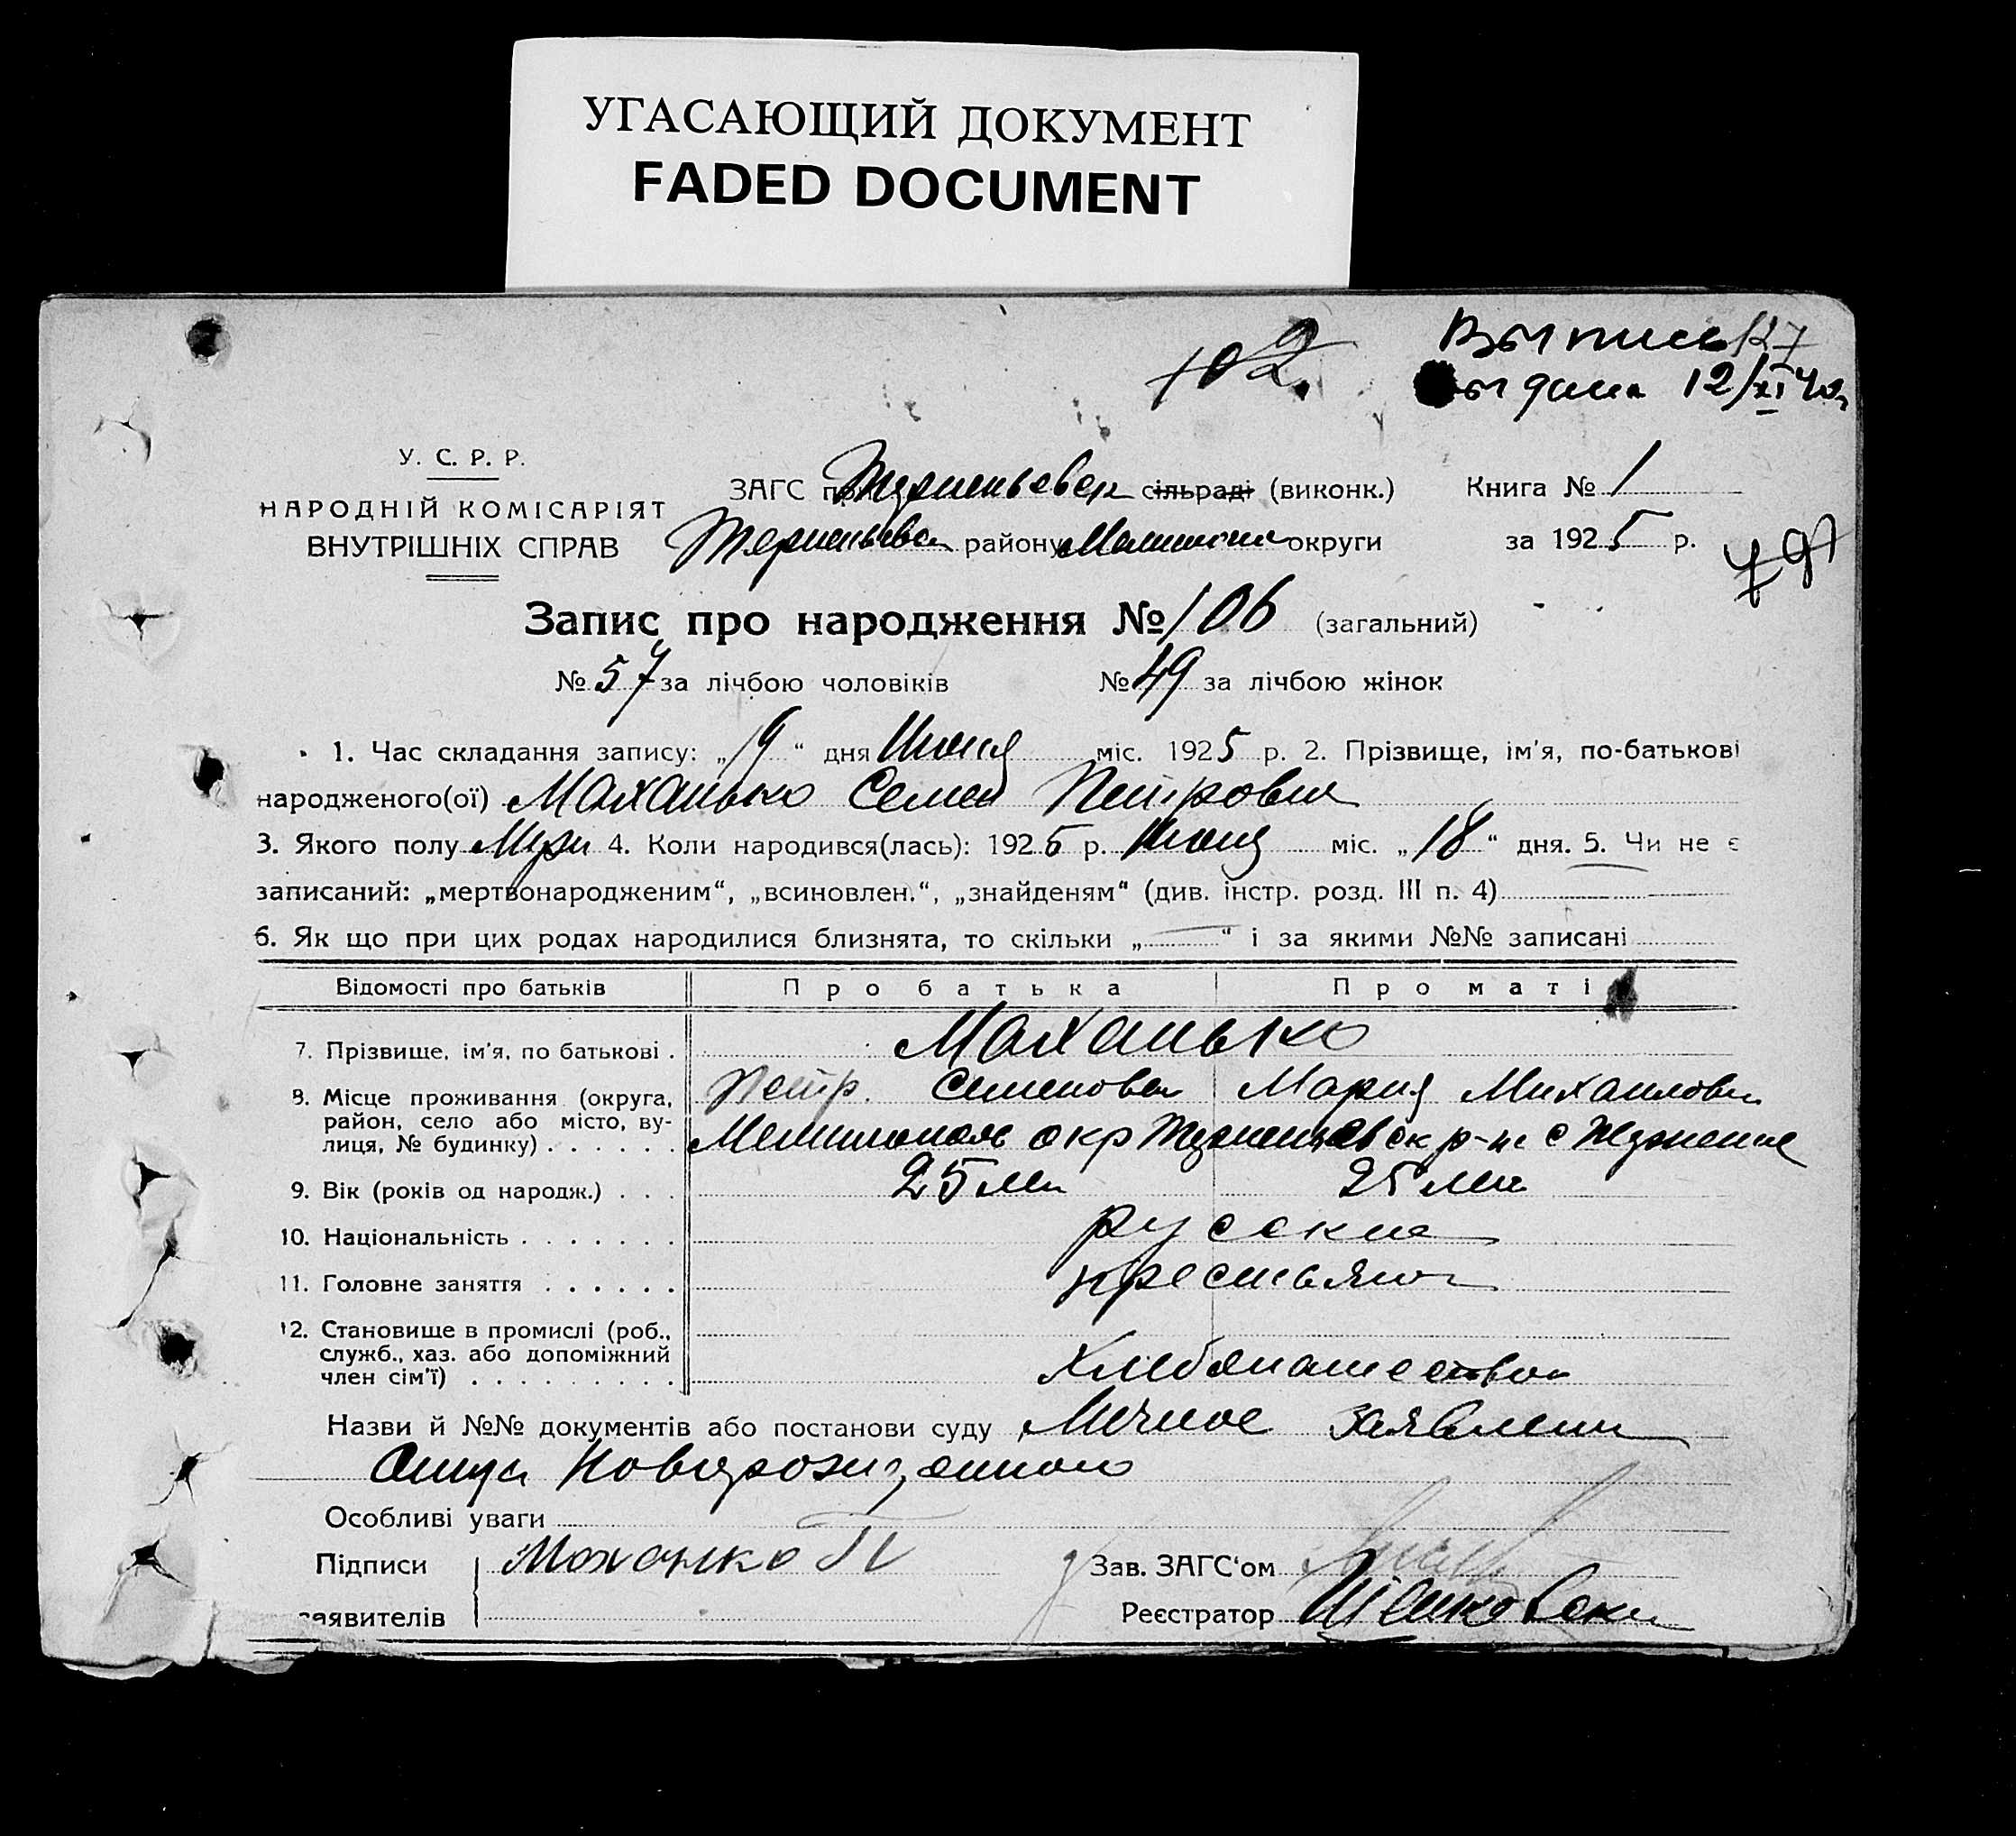 УГАСАЮЩИЙ ДОКУМЕНТ
FADED DOCUMENT
102
Выпись
выдана 12/XI 40г
У. С. Р. Р.
НАРОДНІЙ КОМІСАРІЯТ
ВНУТРІШНІХ СПРАВ
ЗАГС при сільраді (виконк.)
району округи
Книга № 1
за 1925 р.
Запис про народження № 106 (загальний)
№ 57 за лічбою чоловіків № 49 за лічбою жінок
1. Час складання запису: „19“ дня Июня міс. 1925 р. 2. Прізвище, ім'я, по-батькові
народженого(ої) Маханько Семен Петрович
3. Якого полу Муж 4. Коли народився(лась): 1925 р. Июня міс. „18“ дня. 5. Чи не є
записаний: „мертвонародженим“, „всиновлен.“, „знайденям“ (див. інстр. розд. III п. 4)
6. Як що при цих родах народилися близнята, то скільки „—“ і за якими №№ записані
Відомості про батьків Про батька Про маті
7. Прізвище, ім'я, по батькові . Маханько
8. Місце проживання (округа, Петр Семенович Мария Михайловна
район, село або місто, ву-
лиця, № будинку) . . . . . . Мелитополь окр р-н с
9. Вік (років од народж.) . . . 25 лет 25 лет
10. Національність . . . . . . . русские
11. Головне заняття . . . . . . крестьяне
12. Становище в промислі (роб.,
служб., хаз. або допоміжний
член сім'ї) . . . . . . . . . хлебопашество
Назви й №№ документів або постанови суду Личное заявление
Отца Новорожденного
Особливі уваги
Підписи Маханько П
заявителів
Зав. ЗАГС'ом
Реєстратор